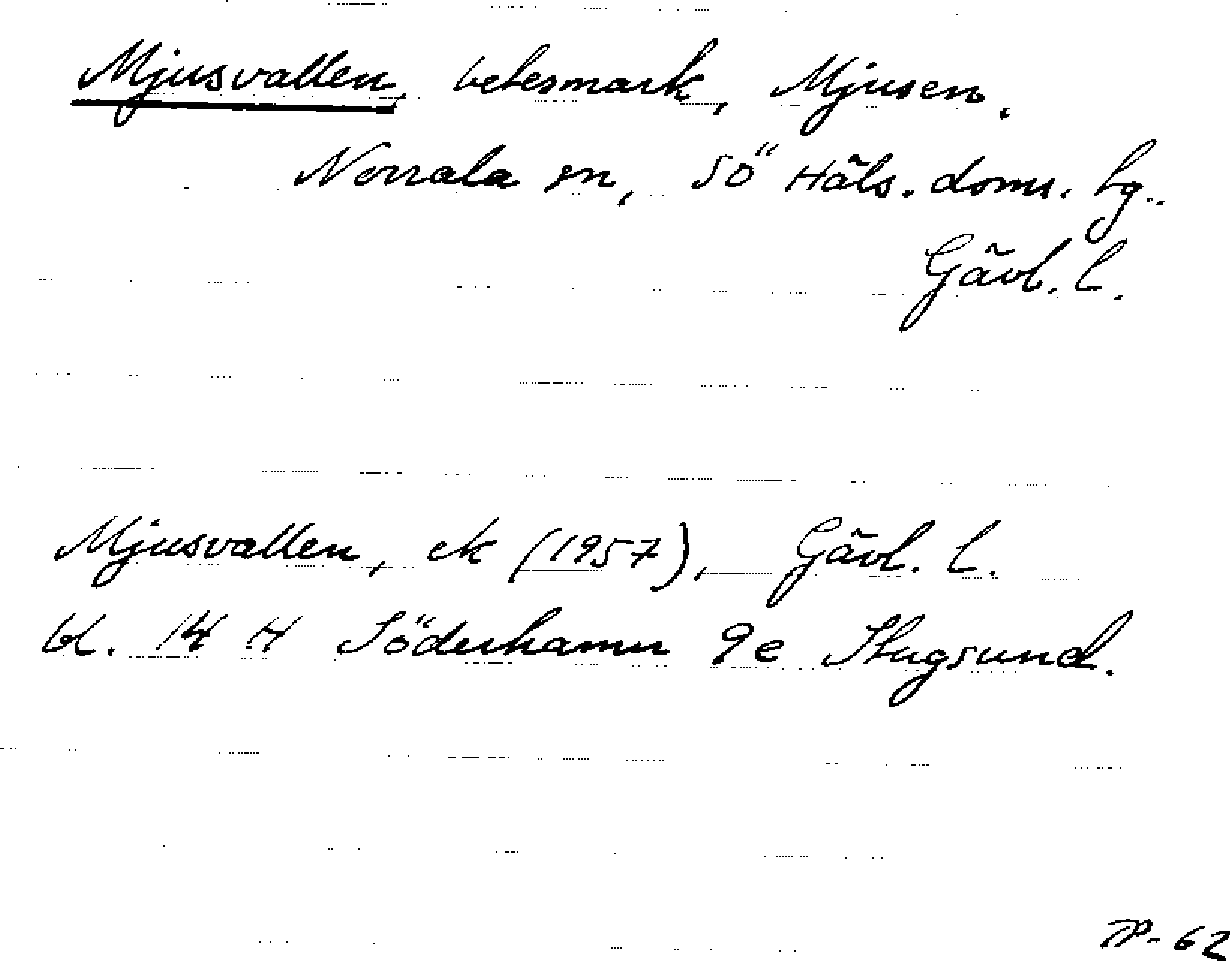 Mjusvallen, betesmark, Mjusen.
Norrala sn, SÖ Häls. doms. hg..
Gävl. l.
Mjusvallen, ek (1957), Gävl. l.
bl. 14 H Söderhamn 9e Skugsund.
-62